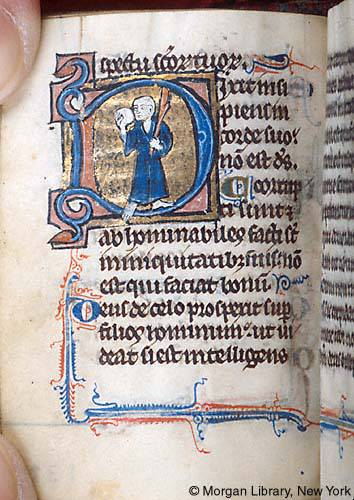 spectu scor tuor.
Dixit insi
piens in
corde suo
nō est ds.
Corrup
ti sunt ⁊
abhominabiles facti st
in iniquitatib; suis nō
est qui faciat bonū
Deus de celo prospexit sup
filios hominum. ut vi
deat si est intelligens
© Morgan Library, New York